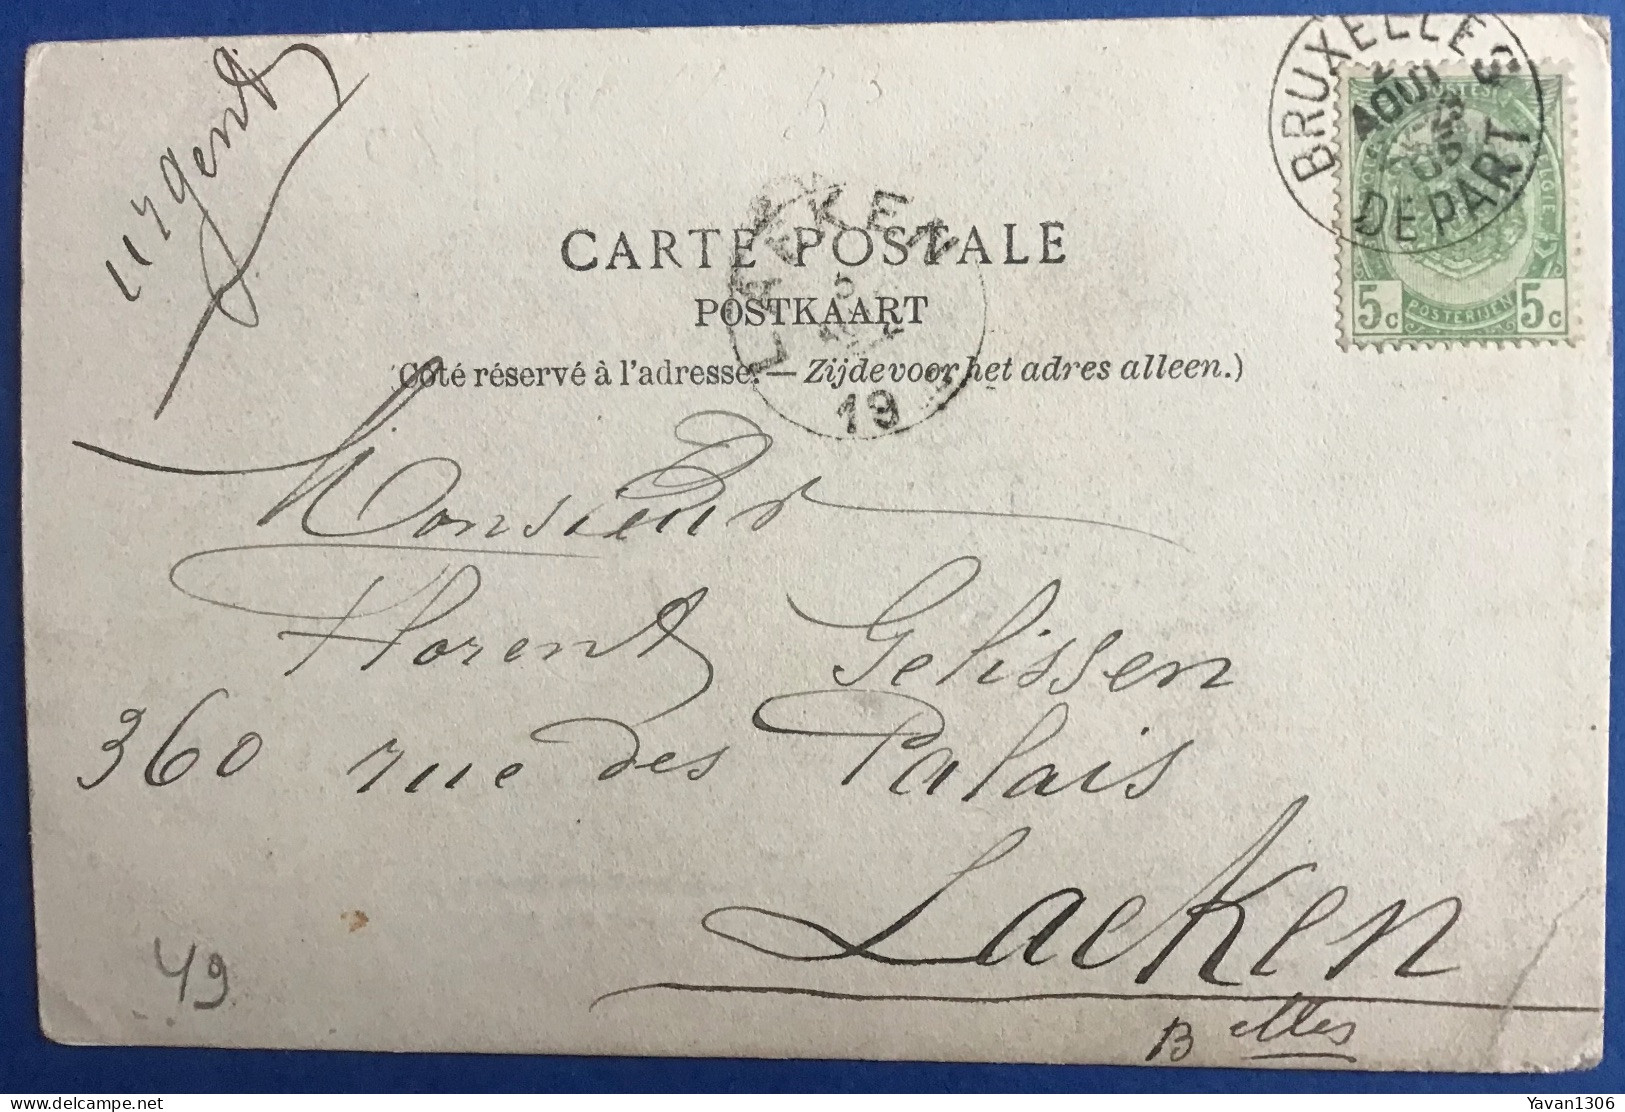 urgent
BRUXELLES
AOUT
05
DEPART
BELGIE
5c POSTERIJEN 5c
LAEKEN
5
19
CARTE POSTALE
POSTKAART
(Côté réservé à l'adresse. — Zijde voor het adres alleen.)
Monsieur
Florent Gelissen
360 rue des Palais
Laeken
Belles
49
delcampe.net
Yavan1306